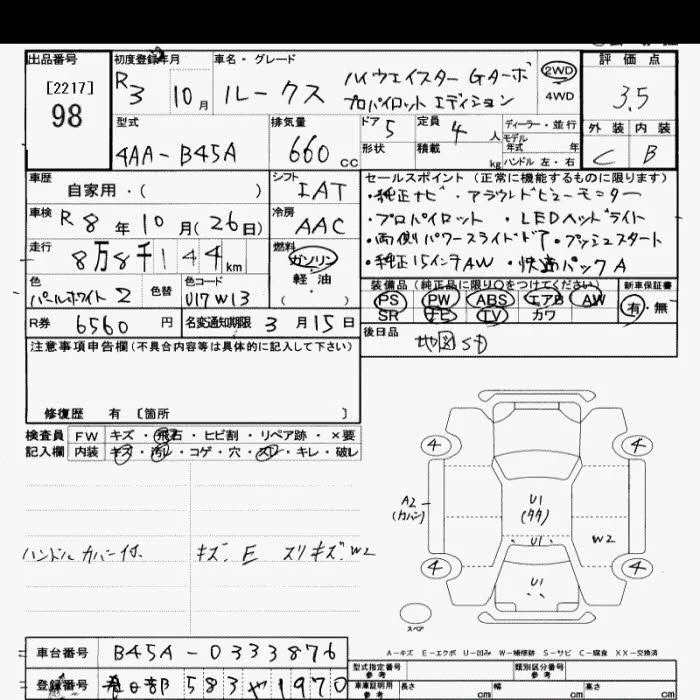 出品番号 初度登録年月 車名・グレード 評価点
[2217] R3 10月 ルークス ハイウェイスター Gターボ 2WD 3.5
98 プロパイロット エディション 4WD
型式 排気量 ドア 5 定員 4人 ディーラー・並行 外装 内装
モデル年式 年
4AA-B45A 660 CC 形状 積載 kg ハンドル 左・右 C B
車歴 シフト セールスポイント (正常に機能するものに限ります)
自家用・( ) IAT ・純正ナビ・アラウンドビューモニター
車検 R8年10月(26日) 冷房 AAC ・プロパイロット ・LEDヘッドライト
走行 8万8千144km 燃料 ガソリン ・両側パワースライドドア・プッシュスタート
軽油 ・純正15インチAW・快適パックA
( )
色 パールホワイト2 色替 色コード U17W13 装備品 (純正品に限り○をつけてください) 新車保証書
PS PW ABS エアB AW 有・無
SR ナビ TV カワ
R券 6560円 名変通知期限 3月15日 後日品 地図SD
注意事項申告欄(不具合内容等は具体的に記入して下さい)
修復歴 有 [箇所 ]
検査員 FW キズ・飛石・ヒビ割・リペア跡・×要
記入欄 内装 キズ・汚レ・コゲ・穴・スレ・キレ・破レ
4 4
A2 (カバン) U1 (タタ)
U1 W2
ハンドルカバー付. キズ. E スリキズ. W2
4 4
U1
スペア
A-キズ E-エクボ U-凹み W-補修跡 S-サビ C-腐食 XX-交換済
車台番号 B45A-0333876
型式指定番号 参考 類別区分番号 参考
登録番号 春日部 583 や 1970
車庫証明用 参考 長さ cm 幅 cm 高さ cm